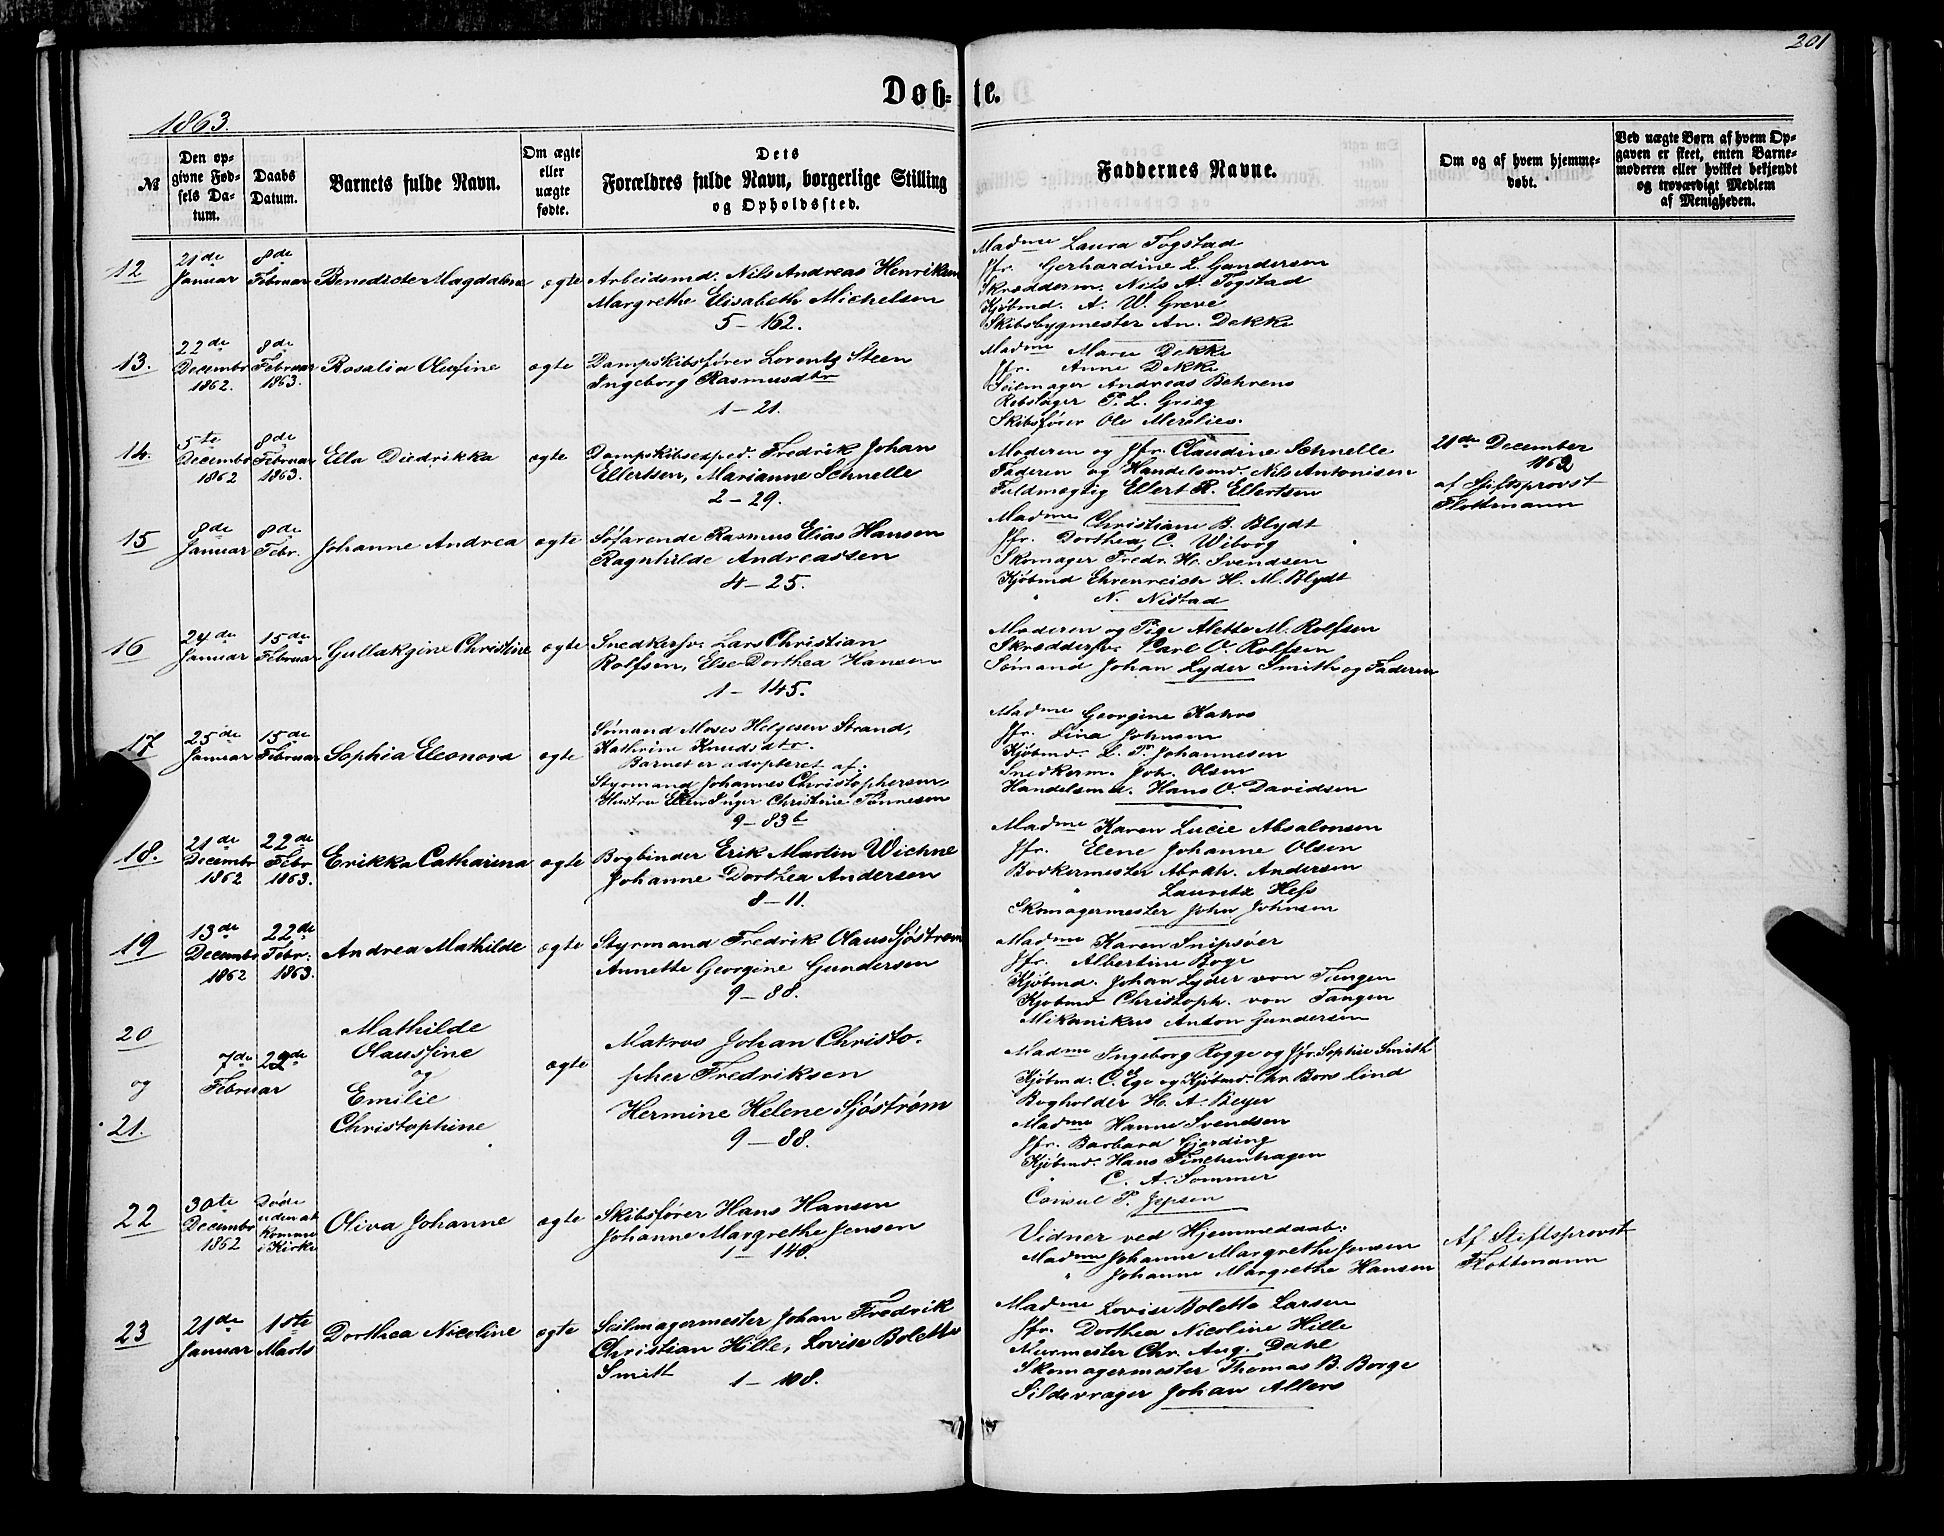 201
Døb-te.
1863.
№
Den opgivne Fødsels Datum.
Daabs Datum.
Barnets fulde Navn.
Om ægte eller uægte fødte.
Dets Forældres fulde Navn, borgerlige Stilling og Opholdssted.
Faddernes Navne.
Om og af hvem hjemmedøbt.
Ved uægte Børn af hvem Opgaven er skeet, enten Barnemoderen eller hvilket bekjendt og troværdigt Medlem af Menigheden.
12
21de Januar
8de Februar
Benedicte Magdalena
ægte
Arbeidsmd. Nils Andreas Henriksen
Margrethe Elisabeth Michelsen
5 - 162.
Madme Laura Fogstad
Jfr. Gerhardine L. Gundersen
Skrædderm. Nils A. Fogstad
Kjøbmd. A. W. Greve
Skibsbygmester An. Dekke
13.
22de Decembr 1862.
8de Februar 1863.
Rosalia Olufine
ægte
Dampskibsfører Lorentz Steen
Ingeborg Rasmusdtr
1 - 21.
Madme Marie Dekke
Jfr. Anne Dekke
Seilmager Andreas Behrens
Rebslager P. L. Grieg
Skibsfører Ole
14.
5te Decembr 1862
8de Februar 1863.
Ella Diedrikka
ægte
Dampskibsexped. Fredrik Johan
Ellertsen, Marianne Schnelle
2 - 29.
Moderen og Jfr. Claudine Schnelle
Faderen og Handelsmd. Nils Antonisen
Fuldmægtig Ellert R. Ellertsen
21de December
1862
af Stiftsprovst
Flottmann
15
8de Januar
8de Febr.
Johanne Andrea
ægte
Søfarende Rasmus Elias Hansen
Ragnhilde Andreassen
4 - 25.
Madme Christiane B. Blydt
Jfr. Dorthea C. Wiborg
Skomager Fredr. H. Svendsen
Kjøbmd Ehrenreich H. M. Blydt
" N. Nistad
16
24de Januar
15de Februar
Gullakgine Christine
ægte
Snedkersv. Lars Christian
Rolfsen, Else Dorthea Hansen
1 - 145.
Moderen og Pige Alette M. Rolfsen
Skræddersv. Carl O. Rolfsen
Sømand Johan Lyder Smith og Faderen
17
25de Januar
15de Februar
Sophia Eleonora
ægte
Sømand Moses Helgesen Strand,
Kathrine Knudsdtr.
Barnet er adopteret af:
Styrmand Johannes Christophersen,
Hustru Ellen Inger Christine Tønnesen
9 - 83b
Madme Georgine Kahrs
Jfr. Lina Johnsen
Kjøbmd. L. P. Johannesen
Snedkerm. Joh. Olsen
Handelsmd. Hans O. Davidsen
18.
21de Decembr 1862
22de Febr 1863.
Erikka Catharina
ægte
Bogbinder Erik Martin Wichne
Johanne Dorthea Andersen
8 - 11.
Madme Karen Lucie Absalonsen
Jfr. Elene Johanne Olsen
Bødkermester Abrah. Andersen
" Lauretz Hess
Skomagermester John Johnsen
19
13de Decembr 1862
22de Febr. 1863.
Andrea Mathilde
ægte
Styrmand Fredrik Olaus Sjøstrøm
Annette Georgine Gundersen
9 - 88.
Madme Karen Snipsøer
Jfr. Albertine Boge
Kjøbmd. Johan Lyder von Tangen
Kjøbmd Christoph. von Tangen
Mikanikus Anton Gundersen
20
og
21.
7de 22de
Februar
Mathilde
Olaussine
og
Emilie
Christophine
ægte
Matros Johan Christo-
pher Fredriksen
Hermine Helene Sjøstrøm
9 - 88.
Madme Ingeborg Rogge og Jfr. Sophie Smith
Kjøbmd. C. Ege og Kjøbmd. Chr. Bors Lind
Bogholder H. A. Beyer
Madme Hanne Svendsen
Jfr. Barbara Gjerding
Kjøbmd. Hans Finchenhagen
" C. A. Sommer
Consul P. Jepsen
22
30te Decembr 1862
Døde uden at komme i Kirke
Oliva Johanne
ægte
Skibsfører Hans Hansen
Johanne Margrethe Jensen
1 - 140.
Vidner ved Hjemmedaab:
Madme Johanne Margrethe Jensen
" Johanne Margrethe Hansen
Af Stiftsprovst
Flottmann
23
21de Januar
1ste Marts
Dorthea Nicoline
ægte
Seilmagermester Johan Fredrik
Christian Hille, Lovise Bolette
Smitt
1 - 108.
Madme Lovise Bolette Larsen
Jfr. Dorthea Nicoline Hille
Murmester Chr. Aug. Dahl
Skomagermester Thomas B. Borge
Sildevrager Johan Allers